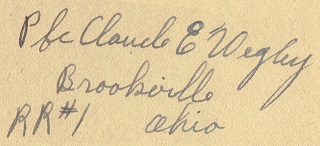 Pfc Claude E Wegley
Brookville
RR#1 Ohio